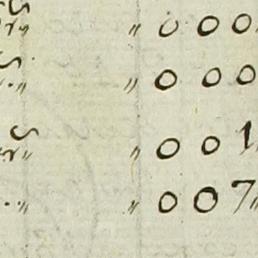 " 0 0 0
" 0 0 0
" 0 0 1
" 0 0 7"